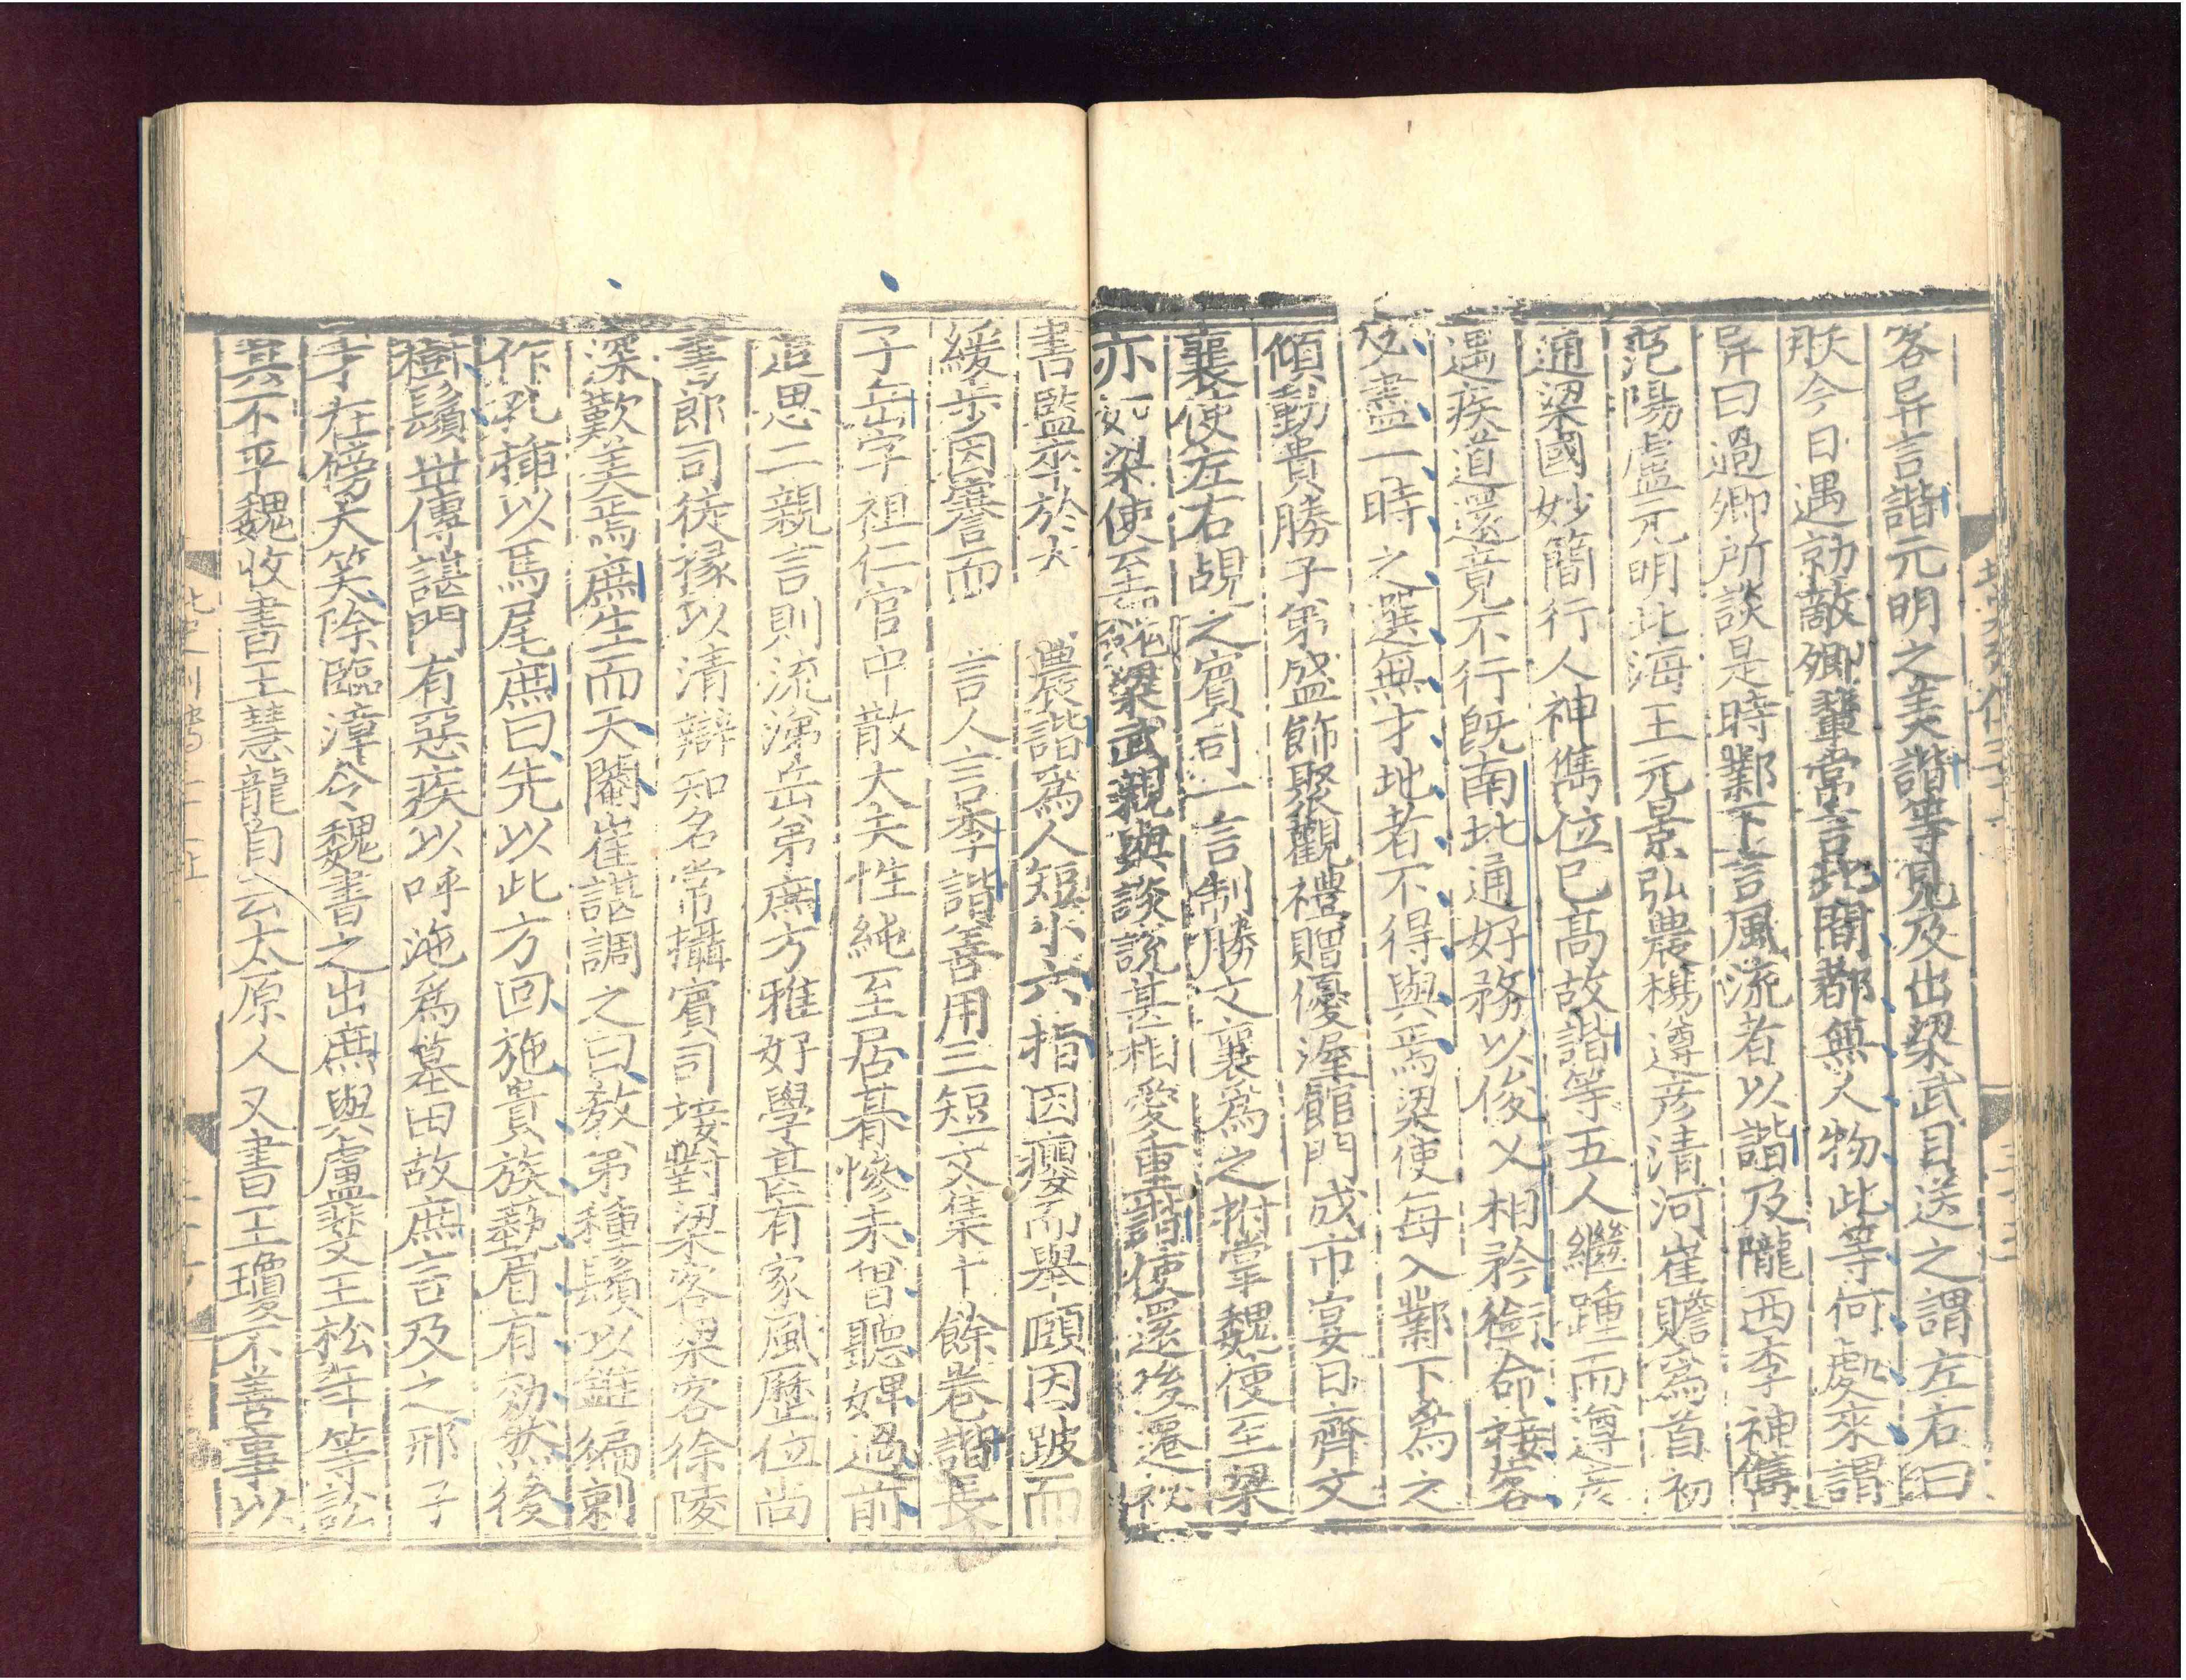 客异言諧元明之美諧等見及出梁武目送之謂左右曰
朕今日遇勍敵卿輩常言北間都無人物此等何處來謂
异曰過卿所談是時鄴下言風流者以諧及隴西李神儁
范陽盧元明北海王元景弘農楊遵彦清河崔贍爲首初
通梁國妙簡行人神儁位已高故諧等五人繼踵而遵彦
遇疾道還竟不行既南北通好務以俊乂相矜銜命接客
必盡一時之選無才地者不得與焉梁使每入鄴下爲之
傾動貴勝子弟盛飾聚觀禮贈優渥館門成市宴日齊文
襄使左右覘之賓司一言制勝文襄爲之拊掌魏使至梁
亦如梁使至 梁武親與談說甚相愛重諧使還後遷秘
書監卒於 農諧爲人短小六指因癭而舉頤因跛而
緩步因謇而 言人言李諧善用三短文集十餘卷諧長
子岳字祖仁官中散大夫性純至居朞慘未曾聽婢過前
追思二親言則流涕岳弟庶方雅好學甚有家風歷位尚
書郎司徒掾以清辯知名常攝賓司接對梁客梁客徐陵
深歎美焉庶生而天閹崔諶調之曰教弟種鬚以錐徧刺
作孔揷以馬尾庶曰先以此方回施貴族藝眉有効然後
樹鬚世傳諶門有惡疾以呼沲爲墓田故庶言及之邢子
才在傍大笑除臨漳令魏書之出庶與盧斐王松年等訟
其不平魏收書王慧龍自云太原人又書王瓊不善事以